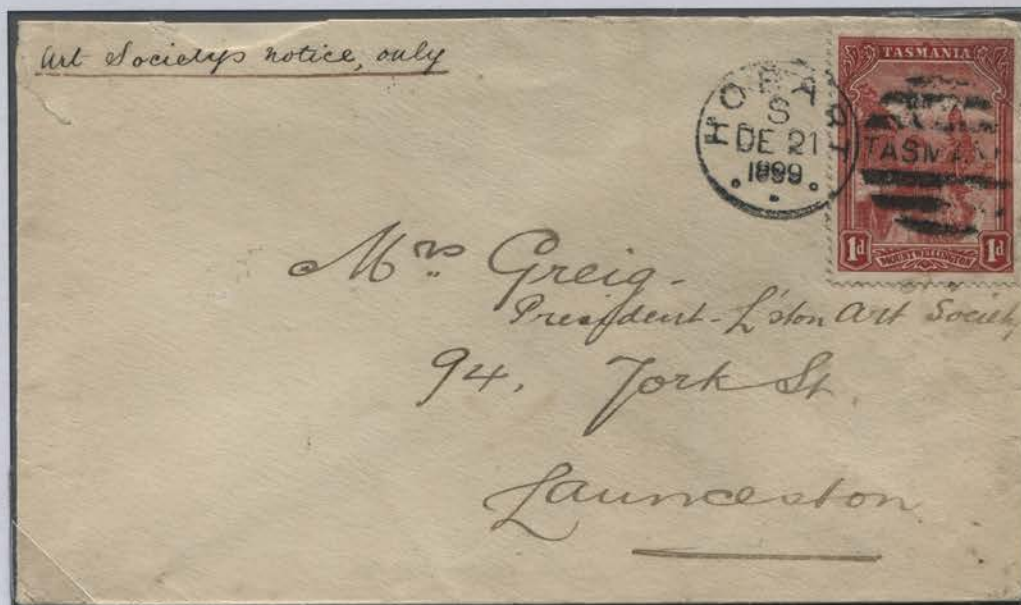 Art Societys notice, only
TASMANIA
HOBART
S
DE 21
1899
TASMANI
1d MOUNT WELLINGTON 1d
Mrs Greig.
President - L'ston Art Society
94, York St.
Launceston